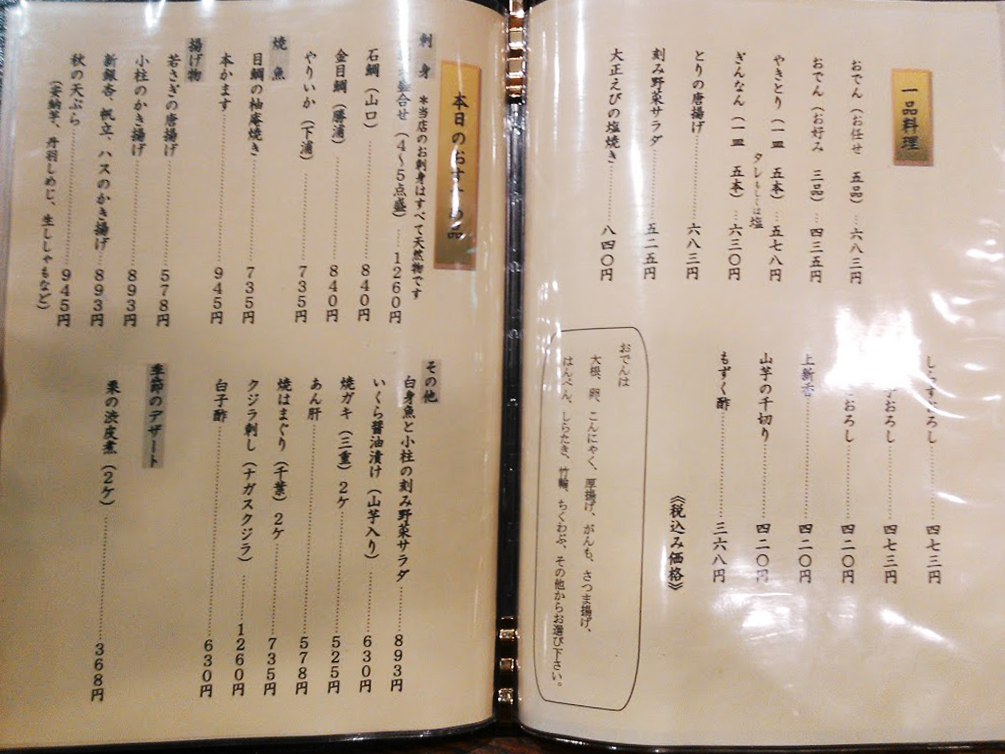 一品料理
おでん（お任せ　五品）…六八三円
おでん（お好み　三品）…四三五円
やきとり（一皿　五本）…五七八円
タレもしくは塩
ぎんなん（一皿　五本）…六三〇円
とりの唐揚げ……六八三円
刻み野菜サラダ……五二五円
大正えびの塩焼き……八四〇円
しらすおろし……四七三円
おろし……四七三円
おろし……四二〇円
上新香……四二〇円
山芋の千切り……四二〇円
もずく酢……三六八円
《税込み価格》
おでんは
大根、卵、こんにゃく、厚揚げ、がんも、さつま揚げ、
はんぺん、しらたき、竹輪、ちくわぶ、その他からお選び下さい。
本日のおすすめ品
刺身　＊当店のお刺身はすべて天然物です
盛合せ（4～5点盛）…1260円
石鯛（山口）……840円
金目鯛（勝浦）……840円
やりいか（下浦）……735円
焼魚
目鯛の柚庵焼き……735円
本かます……945円
揚げ物
若さぎの唐揚げ……578円
小柱のかき揚げ……893円
新銀杏、帆立、ハスのかき揚げ……893円
秋の天ぷら……945円
（安納芋、丹羽しめじ、生ししゃもなど）
その他
白身魚と小柱の刻み野菜サラダ……893円
いくら醤油漬け（山芋入り）……630円
焼ガキ（三重）2ケ……525円
あん肝……578円
焼はまぐり（千葉）2ケ……735円
クジラ刺し（ナガスクジラ）……1260円
白子酢……630円
季節のデザート
栗の渋皮煮（2ケ）……368円